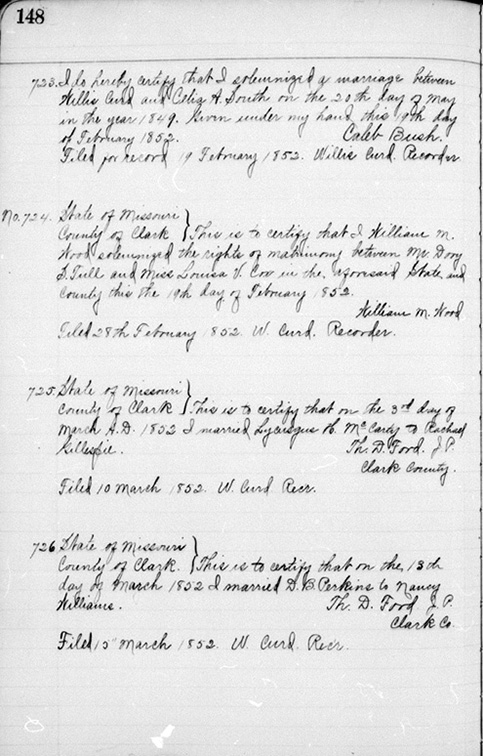 148
723. I do hereby certify that I solemnized a marriage between
Willis Curd and Celia A. South on the 20th day of May
in the year 1849. Given under my hand this 19th day
of February 1852. Caleb Bush.
Filed for record 19 February 1852. Willis Curd. Recorder
No. 724. State of Missouri }
County of Clark } This is to certify that I William M.
Wood solemnized the rights of matrimony between Mr.
D. Tull and Miss Louisa V. Cox in the, aforesaid State and
County this the 19th day of February 1852.
William M. Wood
Filed 28th February 1852. W. Curd. Recorder.
725. State of Missouri }
County of Clark } This is to certify that on the 3rd day of
March A.D. 1852 I married Lycurgus McCarty to Rachael
Gillespie. Th. D. Ford. J. P.
Clark County.
Filed 10 March 1852. W. Curd Recr.
726 State of Missouri }
County of Clark. } This is to certify that on the, 13th
day of March 1852 I married D. B. Perkins to Nancy
Williams. Th. D. Ford J. P.
Clark Co.
Filed 15" March 1852. W. Curd. Recr.